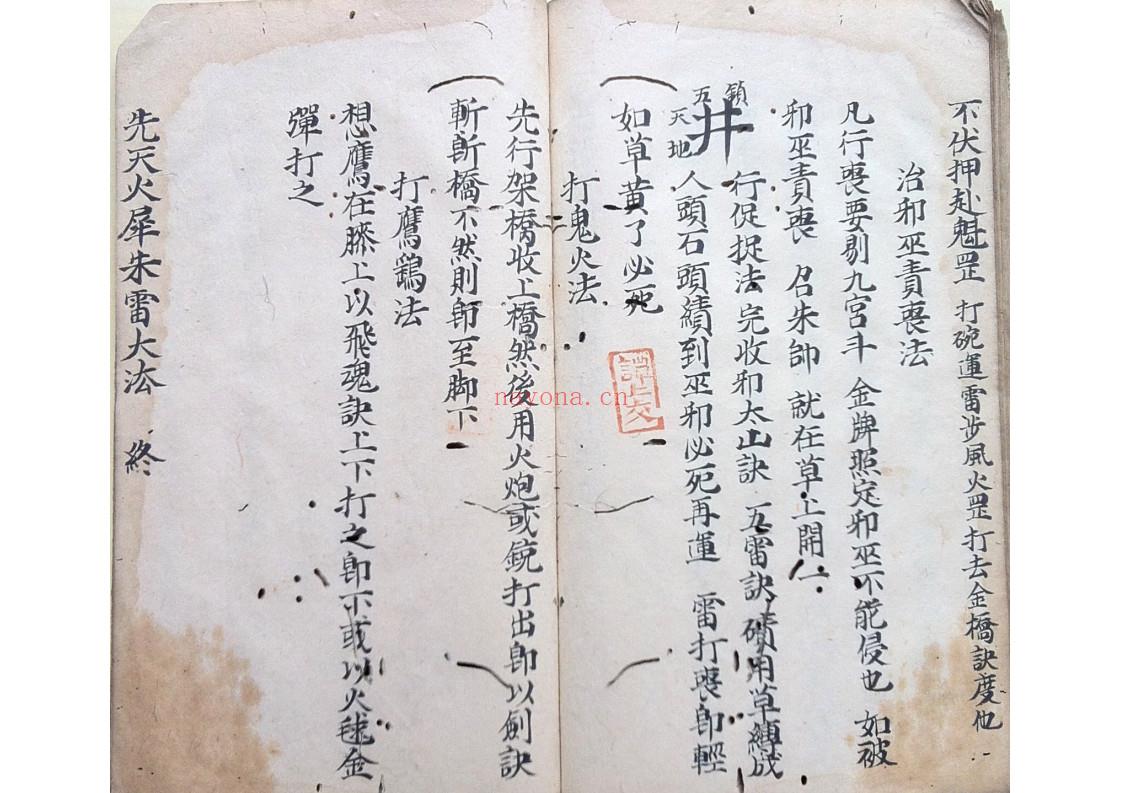 不伏押赴魁罡 打碗運雷步風火罡打去金橋訣度他
治邪巫責喪法
凡行喪要剔九宮斗 金牌照定邪巫不能侵也 如被
邪巫責喪 召朱帥 就在草上開一
鎖
五 井
天地
行促捉法 完收邪太山訣 五雷訣 用草縛成
人頭石頭績到巫邪必死再運 雷打喪即輕
如草黃了必死
打鬼火法
先行架橋收上橋然後用火炮或銃打出即以劍訣
斬斬橋不然則師至脚下
打鷹鷄法
想鷹在膝上以飛魂訣上下打之即下或以火毬金
彈打之
先天火犀朱雷大法 終
nayona.cn